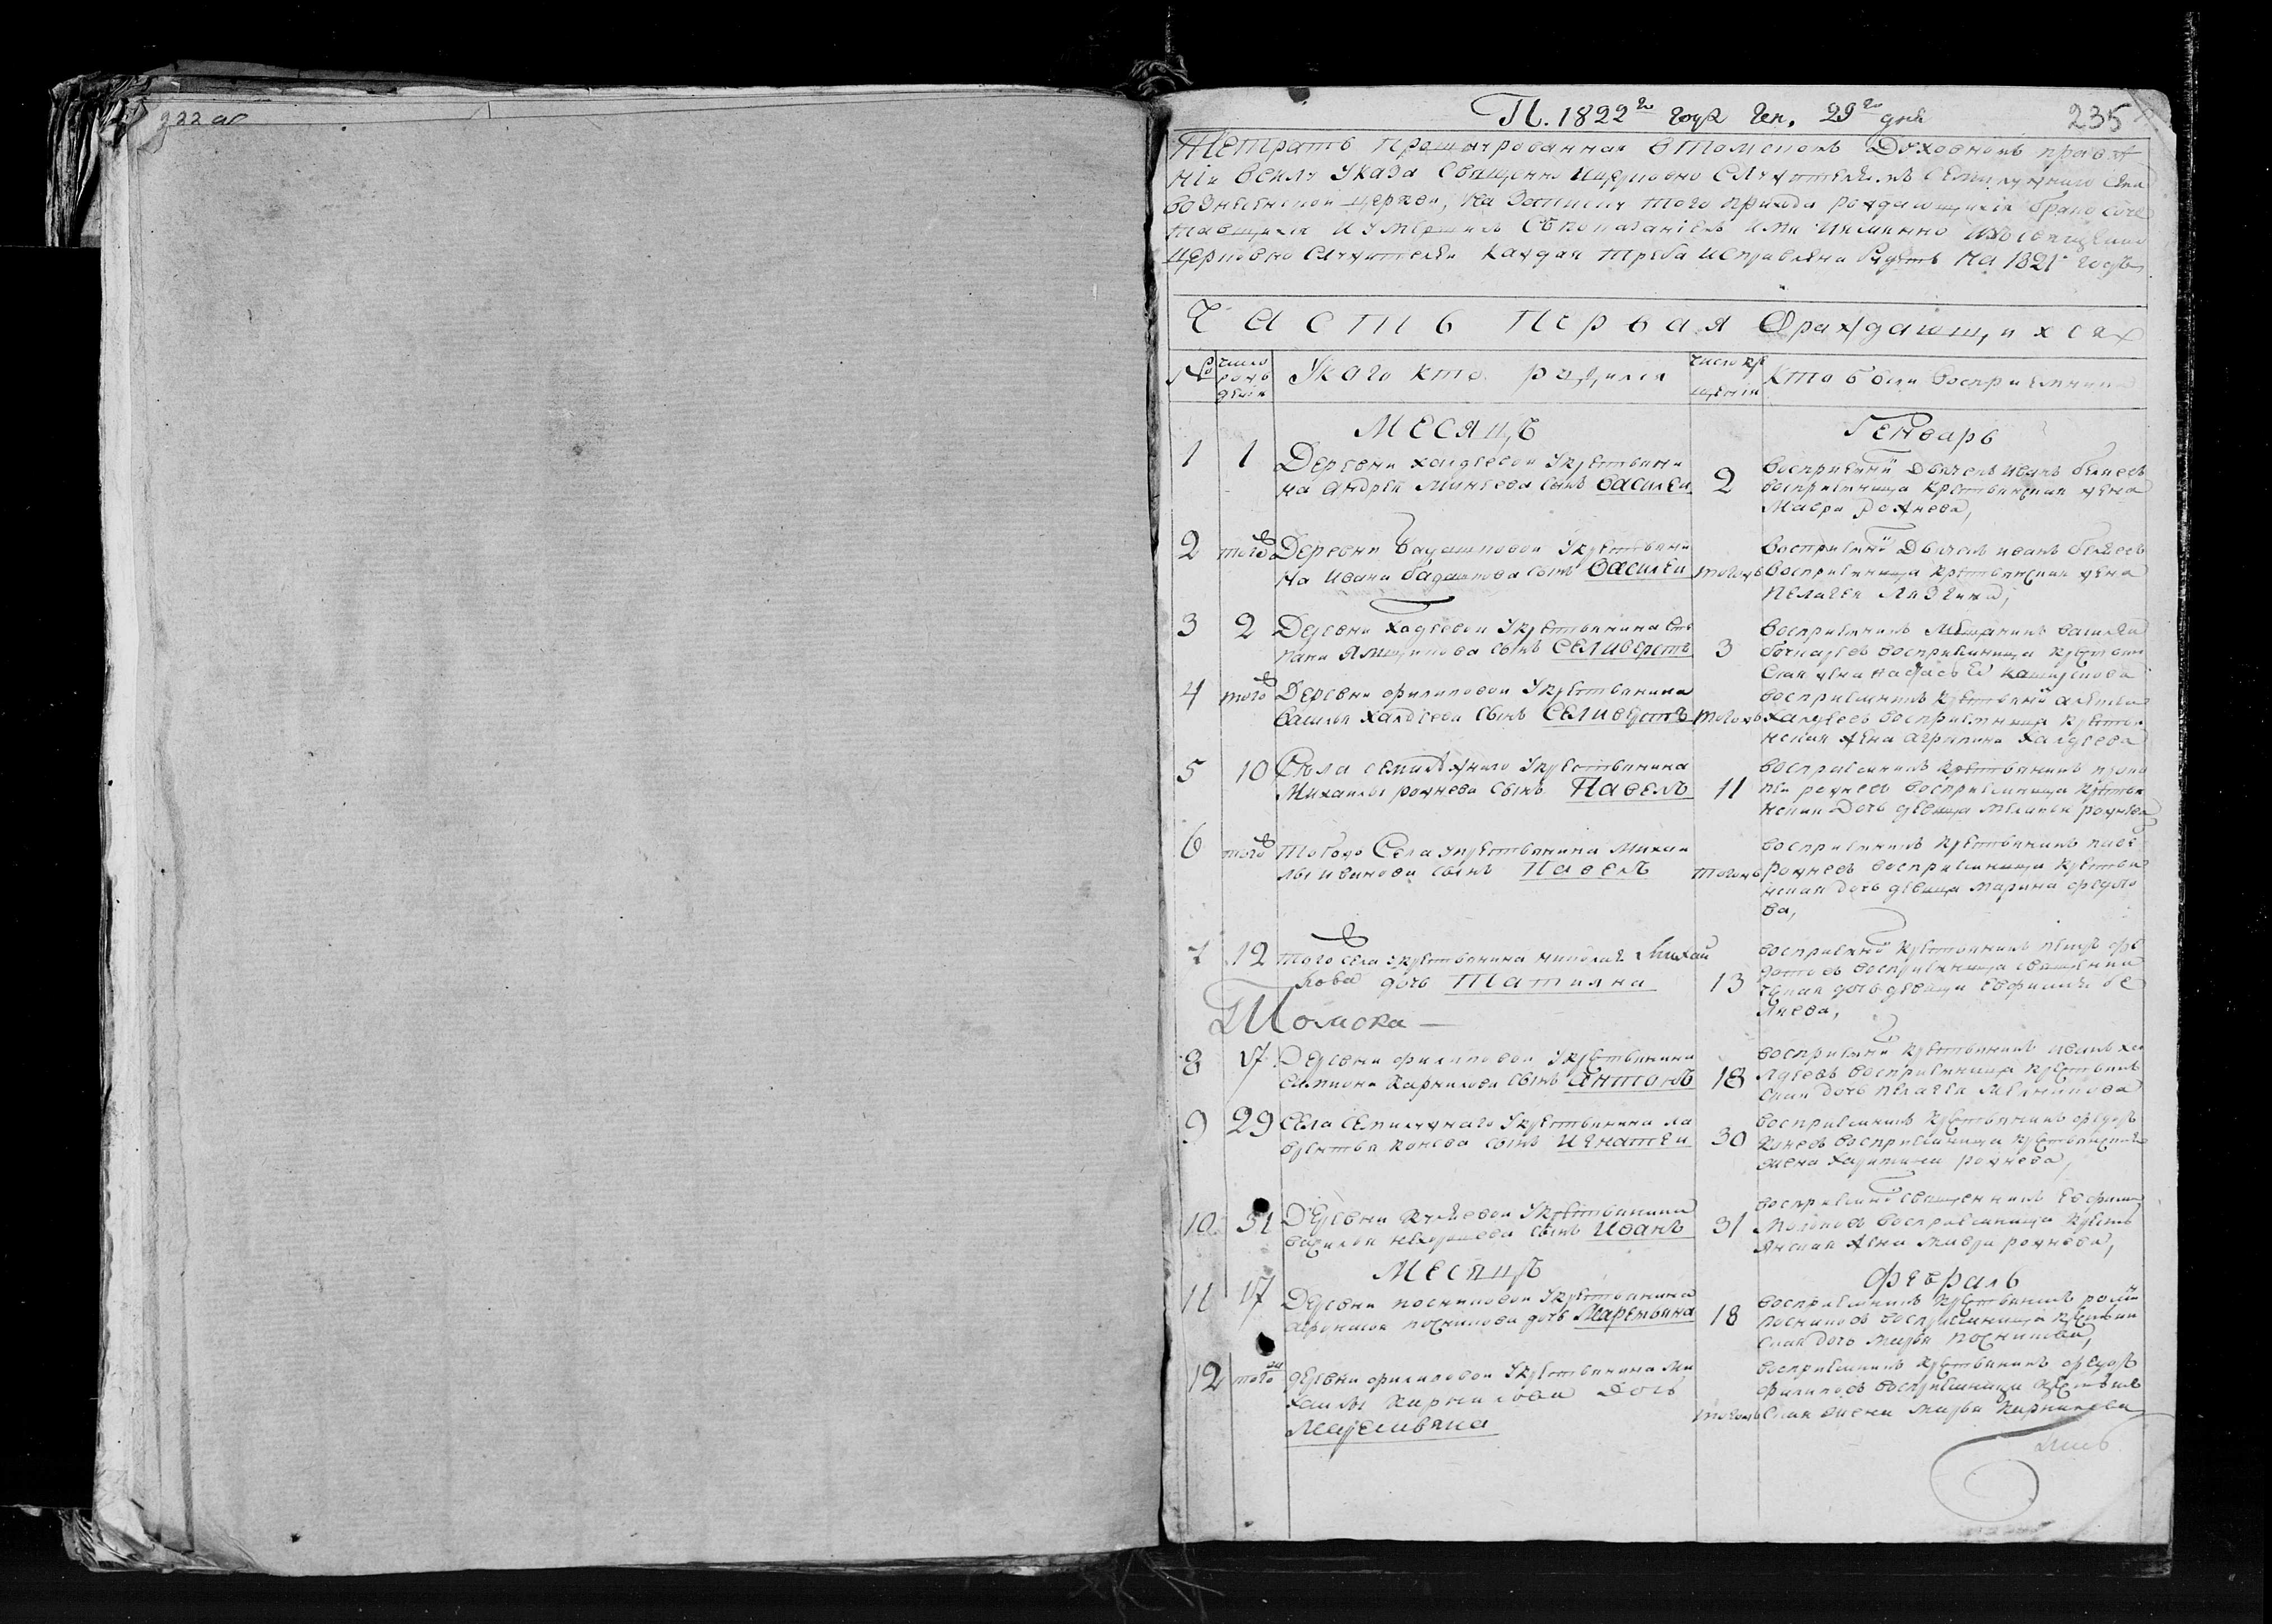 222 об
П. 1822го года Ген. 29го дня
235
Тетрать прошнурованная втомскомъ Духовномъ правле
нiи всилу Указа Священно Церковно Служителямъ Семилужнаго Села
вознесенской церкви, на Записку того прихода рождающихся бракосоче
тавшихся и умершихъ Спонасанiемъ кѣмъ имянно изъ священно
церковно Служителей каждая треба исправлена будетъ На 1821 годъ
Часть Первая Ораждающихся
№ число рожденiя
Укого кто родился
число крещенiя
Кто были восприемники
МЕСЯЦЪ Генварь
1 1 Деревни халдеевой Укрестьяни
на Андрея Минеева сынъ Василей 2
восприемни Дьячекъ иванъ беляевъ
восприемница крестьянская жена
Мавра рожнева,
2 того Деревни Бадашковой Укрестьяни
на Ивана бадашкова сынъ Василеи тогожъ
восприемни Дьячекъ иванъ беляевъ
восприемница крестьянская жена
Пелагея
3 2 Деревни Халдеевой Укрестьянина сте
пана Ямщикова сынъ Селиверстъ 3
восприемникъ Мещанинъ василей
восприемница крестьян
ская жена
4 того Деревни филиповой Укрестьянина
василья халдеева сынъ Селиверстъ тогожъ
восприемникъ крестьяни алексей
Халдеевъ восприемница крестья
нская жена агрипина Халдеева
5 10 Села семилужнаго Укрестьянина
Михаилы рожнева сынъ Павелъ 11
восприемникъ крестьянинъ проко
пей рожневъ восприемница крестья
нская Дочь девица меланья рожнева
6 того тогожъ Села укрестьянина Михаи
лы иванова сынъ Павелъ тогожъ
восприемникъ крестьянинъ павелъ
рожневъ восприемница крестья
нская дочь девица марина федото
ва,
7 12 того села укрестьянина николая Михаи
лова дочь Татияна 13
восприемни крестьянинъ петръ фе
дотовъ восприемница священни
ческая дочь девица евфимия бе
ляева,
Томска —
8 17 Деревни филиповой Укрестьянина
симиона Карнилова сынъ Антонъ 18
восприемни крестьянинъ иванъ ха
лдеевъ восприемница крестьян
ская дочь пелагея Мелникова
9 29 села Семилужнаго Укрестьянина ла
врентья конева сынъ Игнатеи 30
восприемникъ крестьянинъ федоръ
коневъ восприемница крестьянская
жена Харитина рожнева,
10 31 Деревни Кулаевой Укрестьянина
василья нехорошева сынъ Иванъ 31
восприемни священникъ Евфими
восприемница кресть
янская жена Мавра рожнева,
МЕСЯЦЪ Февраль
11 17 Деревни посниковой Укрестьянина
афонасья посникова дочь Маремьяна 18
восприемникъ крестьянинъ
посниковъ восприемница крестьян
ская дочь марья посникова,
12 того деревни филиповой Укрестьянина Ми
хаилы Карнилова Дочь
Маремьяна тогожъ
восприемникъ крестьянинъ федоръ
филиповъ восприемница крестьян
ская жена марья карнилова